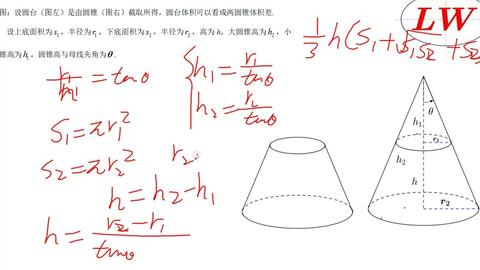 图：设圆台（图左）是由圆锥（图右）截取所得，圆台体积可以看成两圆锥体积差.
设上底面积为s₁，半径为r₁，下底面积为s₂，半径为r₂，高为h，大圆锥高为h₂，小
锥高为h₁，圆锥高与母线夹角为θ.
LW
1/3 h(S₁+√S₁S₂+S₂
r₁/h₁ = tanθ
h₁ = r₁/tanθ
h₂ = r₂/tanθ
S₁ = πr₁²
S₂ = πr₂²
r₂
h = h₂ - h₁
h = r₂ - r₁/tanθ
θ
h₁
r₁
h₂
h
r₂